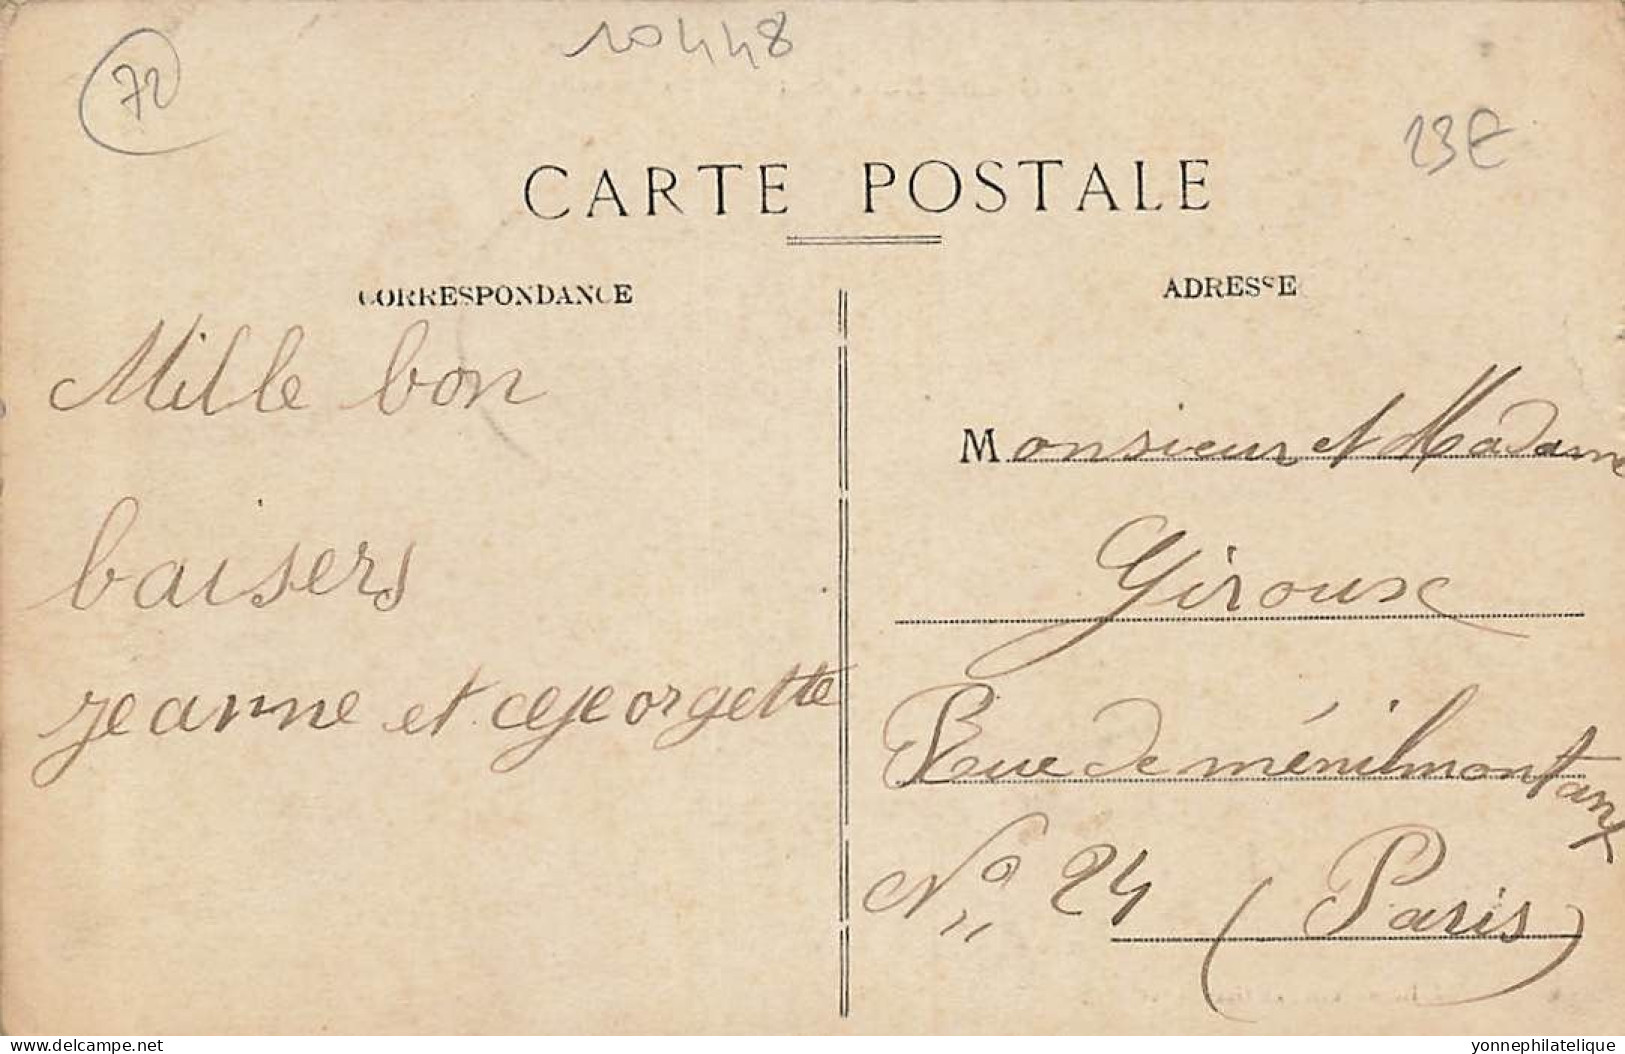 72
10448
23€
CARTE POSTALE
CORRESPONDANCE
ADRESSE
Mille bon
baisers
jeanne et Georgette
Monsieur et Madame
Giroux
Rue de ménilmontant
No 24 (Paris)
delcampe.net
yonnephilatelique